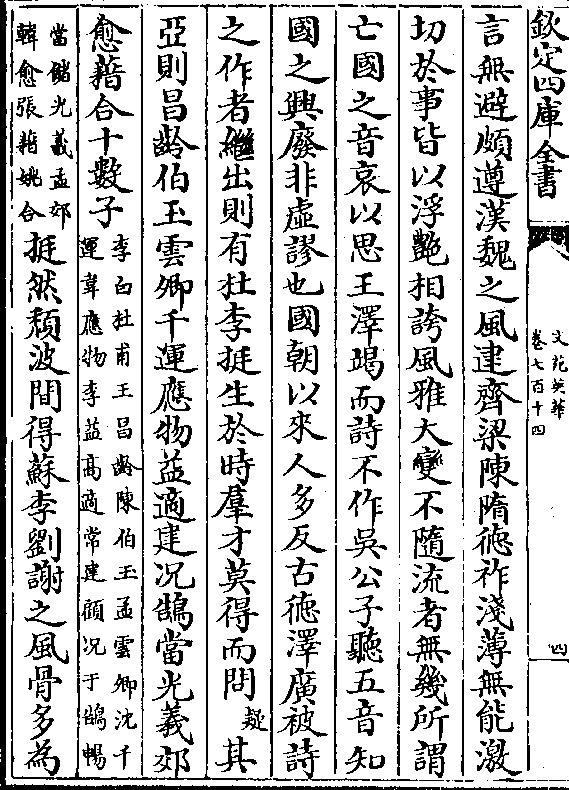 欽定四庫全書
文苑英華
卷七百十四
四
言無避頗遵漢魏之風逮齊梁陳隋徳祚淺薄無能激
切於事皆以浮艷相誇風雅大變不隨流者無幾所謂
亡國之音哀以思王澤竭而詩不作吳公子聽五音知
國之興廢非虛謬也國朝以來人多反古徳澤廣被詩
之作者繼出則有杜李挺生於時羣才莫得而問疑其
亞則昌齡伯玉雲卿千運應物益適建况鵠當光義郊
愈藉合十數子李白杜甫王昌齡陳伯玉孟雲卿沈千運韋應物李益高適常建顧况于鵠暢
當儲光義孟郊韓愈張藉姚合挺然頽波間得蘇李劉謝之風骨多為